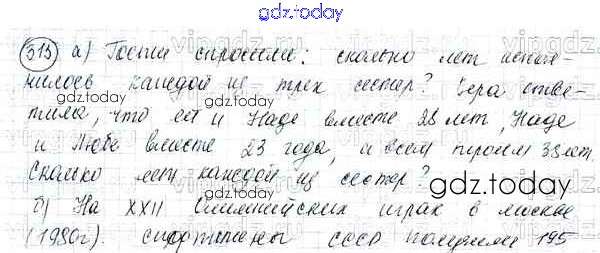 gdz.today
315 а) Гости спросили: сколько лет испол-
нилось каждой из трех сестер? Вера отве-
gdz.today
тила, что ей и Наде вместе 28 лет, Наде
и Любе вместе 23 года, а всем троим 38 лет.
Сколько лет каждой из сестер?
gdz.today
б) На XXII Олимпийских играх в москве
(1980г). спортсмены СССР получили 195
gdz.today